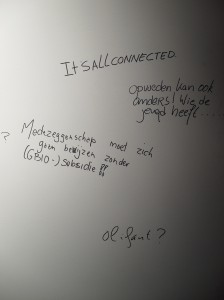 ItSALLCONNECTED.
Opvoeden kan ook
anders! Wie de
jeugd heeft.....
? Medezeggenschap moet zich
gaan bewijzen zonder
(GBIO-) subsidie !!
olifant?